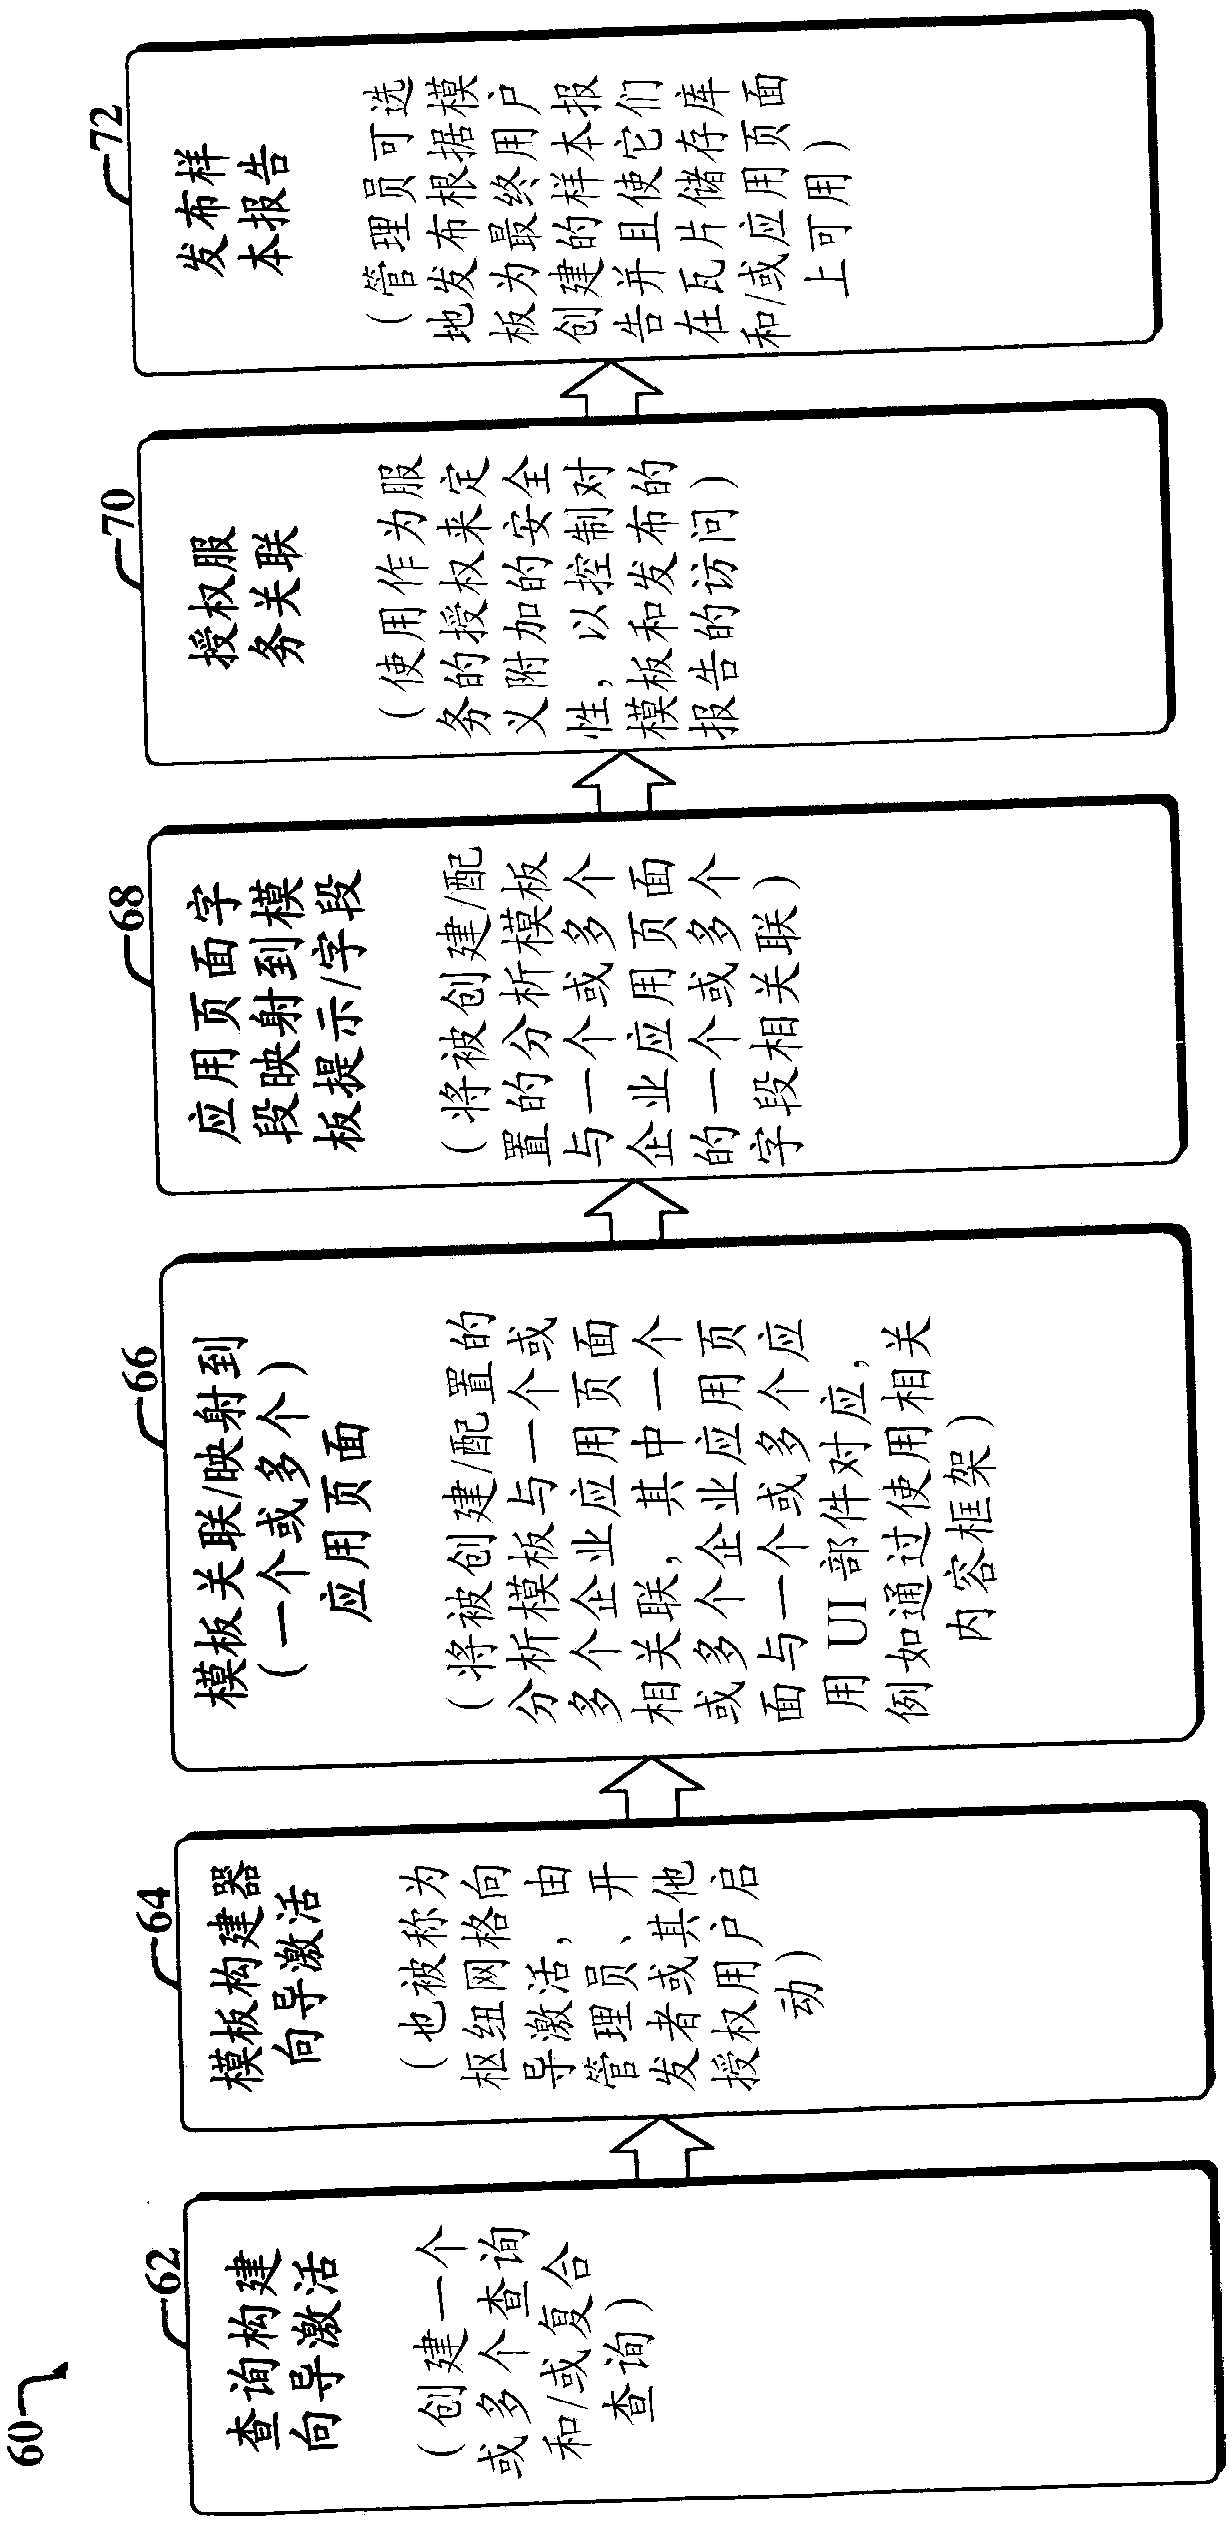 60
62
查询构建
向导激活
(创建一个
或多个查询
和/或复合
查询)
64
模板构建器
向导激活
(也被称为
枢纽网格向
导激活,由
管理员、开
发者或其他
授权用户启
动)
66
模板关联/映射到
(一个或多个)
应用页面
(将被创建/配置的
分析模板与一个或
多个企业应用页面
相关联,其中一个
或多个企业应用页
面与一个或多个应
用 UI 部件对应,
例如通过使用相关
内容框架)
68
应用页面字
段映射到模
板提示/字段
(将被创建/配
置的分析模板
与一个或多个
企业应用页面
的一个或多个
字段相关联)
70
授权服
务关联
(使用作为服
务的授权来定
义附加的安全
性,以控制对
模板和发布的
报告的访问)
72
发布样
本报告
(管理员可选
地发布根据模
板为最终用户
创建的样本报
告并且使它们
在瓦片储存库
和/或应用页面
上可用)